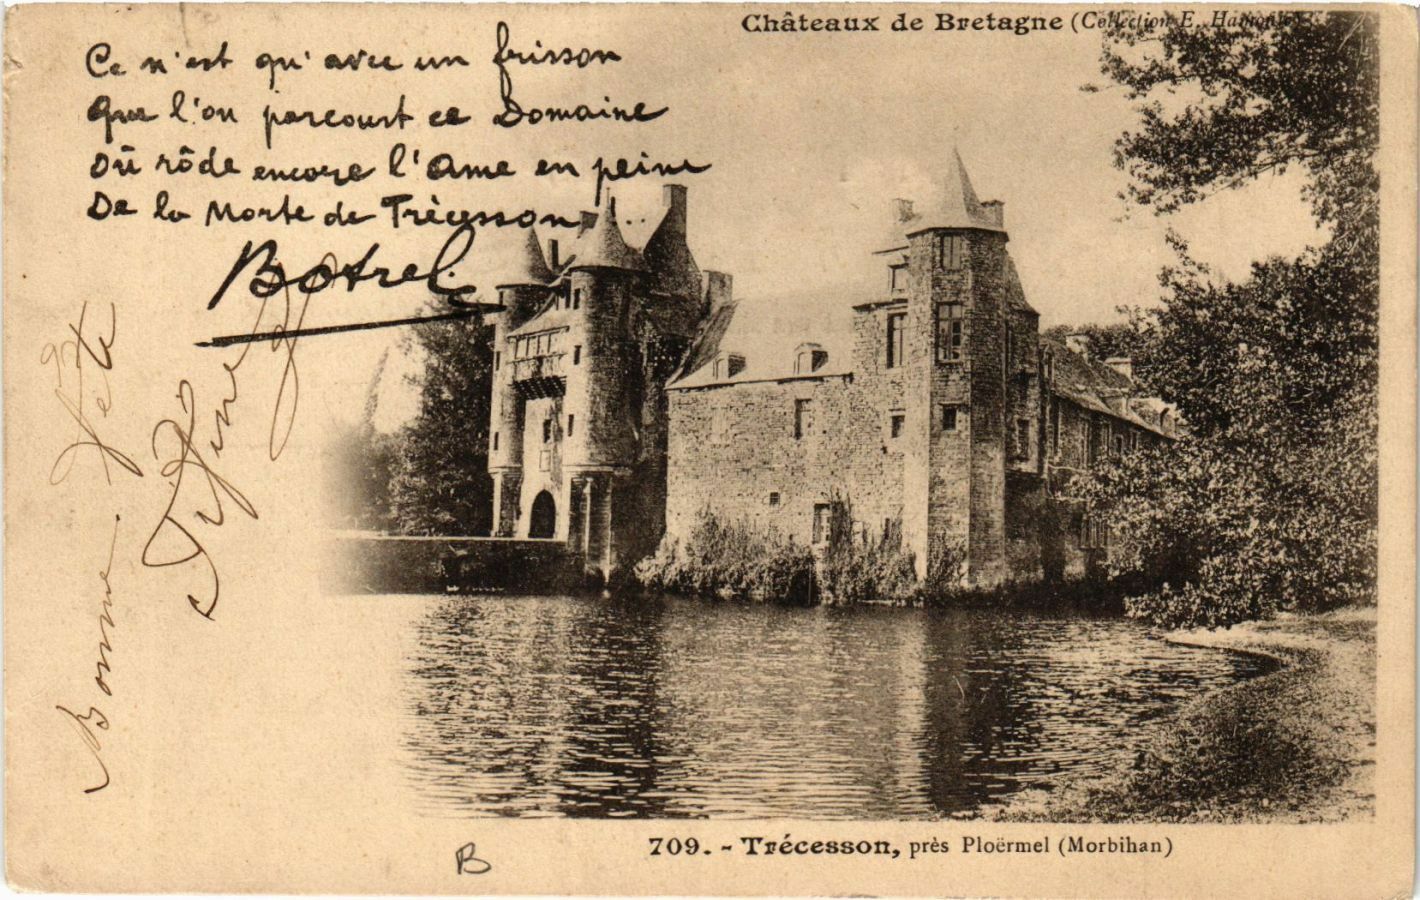 Châteaux de Bretagne (Collection E. Hamonic)
Ce n'est qu'avec un frisson
Que l'on parcourt ce Domaine
Où rôde encore l'Ame en peine
De la Morte de Trécesson!...
Botrel
Bonne fête
709. - Trécesson, près Ploërmel (Morbihan)
B